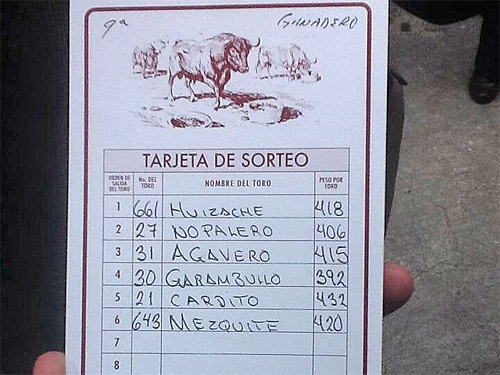 9a GANADERO
TARJETA DE SORTEO
ORDEN DE SALIDA DEL TORO No. DEL TORO NOMBRE DEL TORO PESO POR TORO
1 661 HUIZACHE 418
2 27 NOPALERO 406
3 31 AGAVERO 415
4 30 GARAMBULLO 392
5 21 CARDITO 432
6 643 MEZQUITE 420
7
8